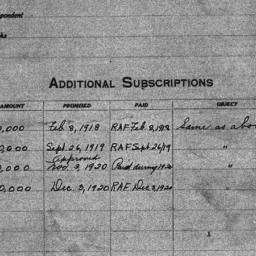 pondent
ks
ADDITIONAL SUBSCRIPTIONS
AMOUNT PROMISED PAID OBJECT
0,000 Feb 8, 1918 RAF Feb. 8, 1918 Same as abo
0,000 Sept. 26, 1919 RAF Sept 26/19 "
approved
0,000 Nov. 3, 1920 Paid during 1920 "
0,000 Dec. 3, 1920 RAF Dec 3, 1920 "